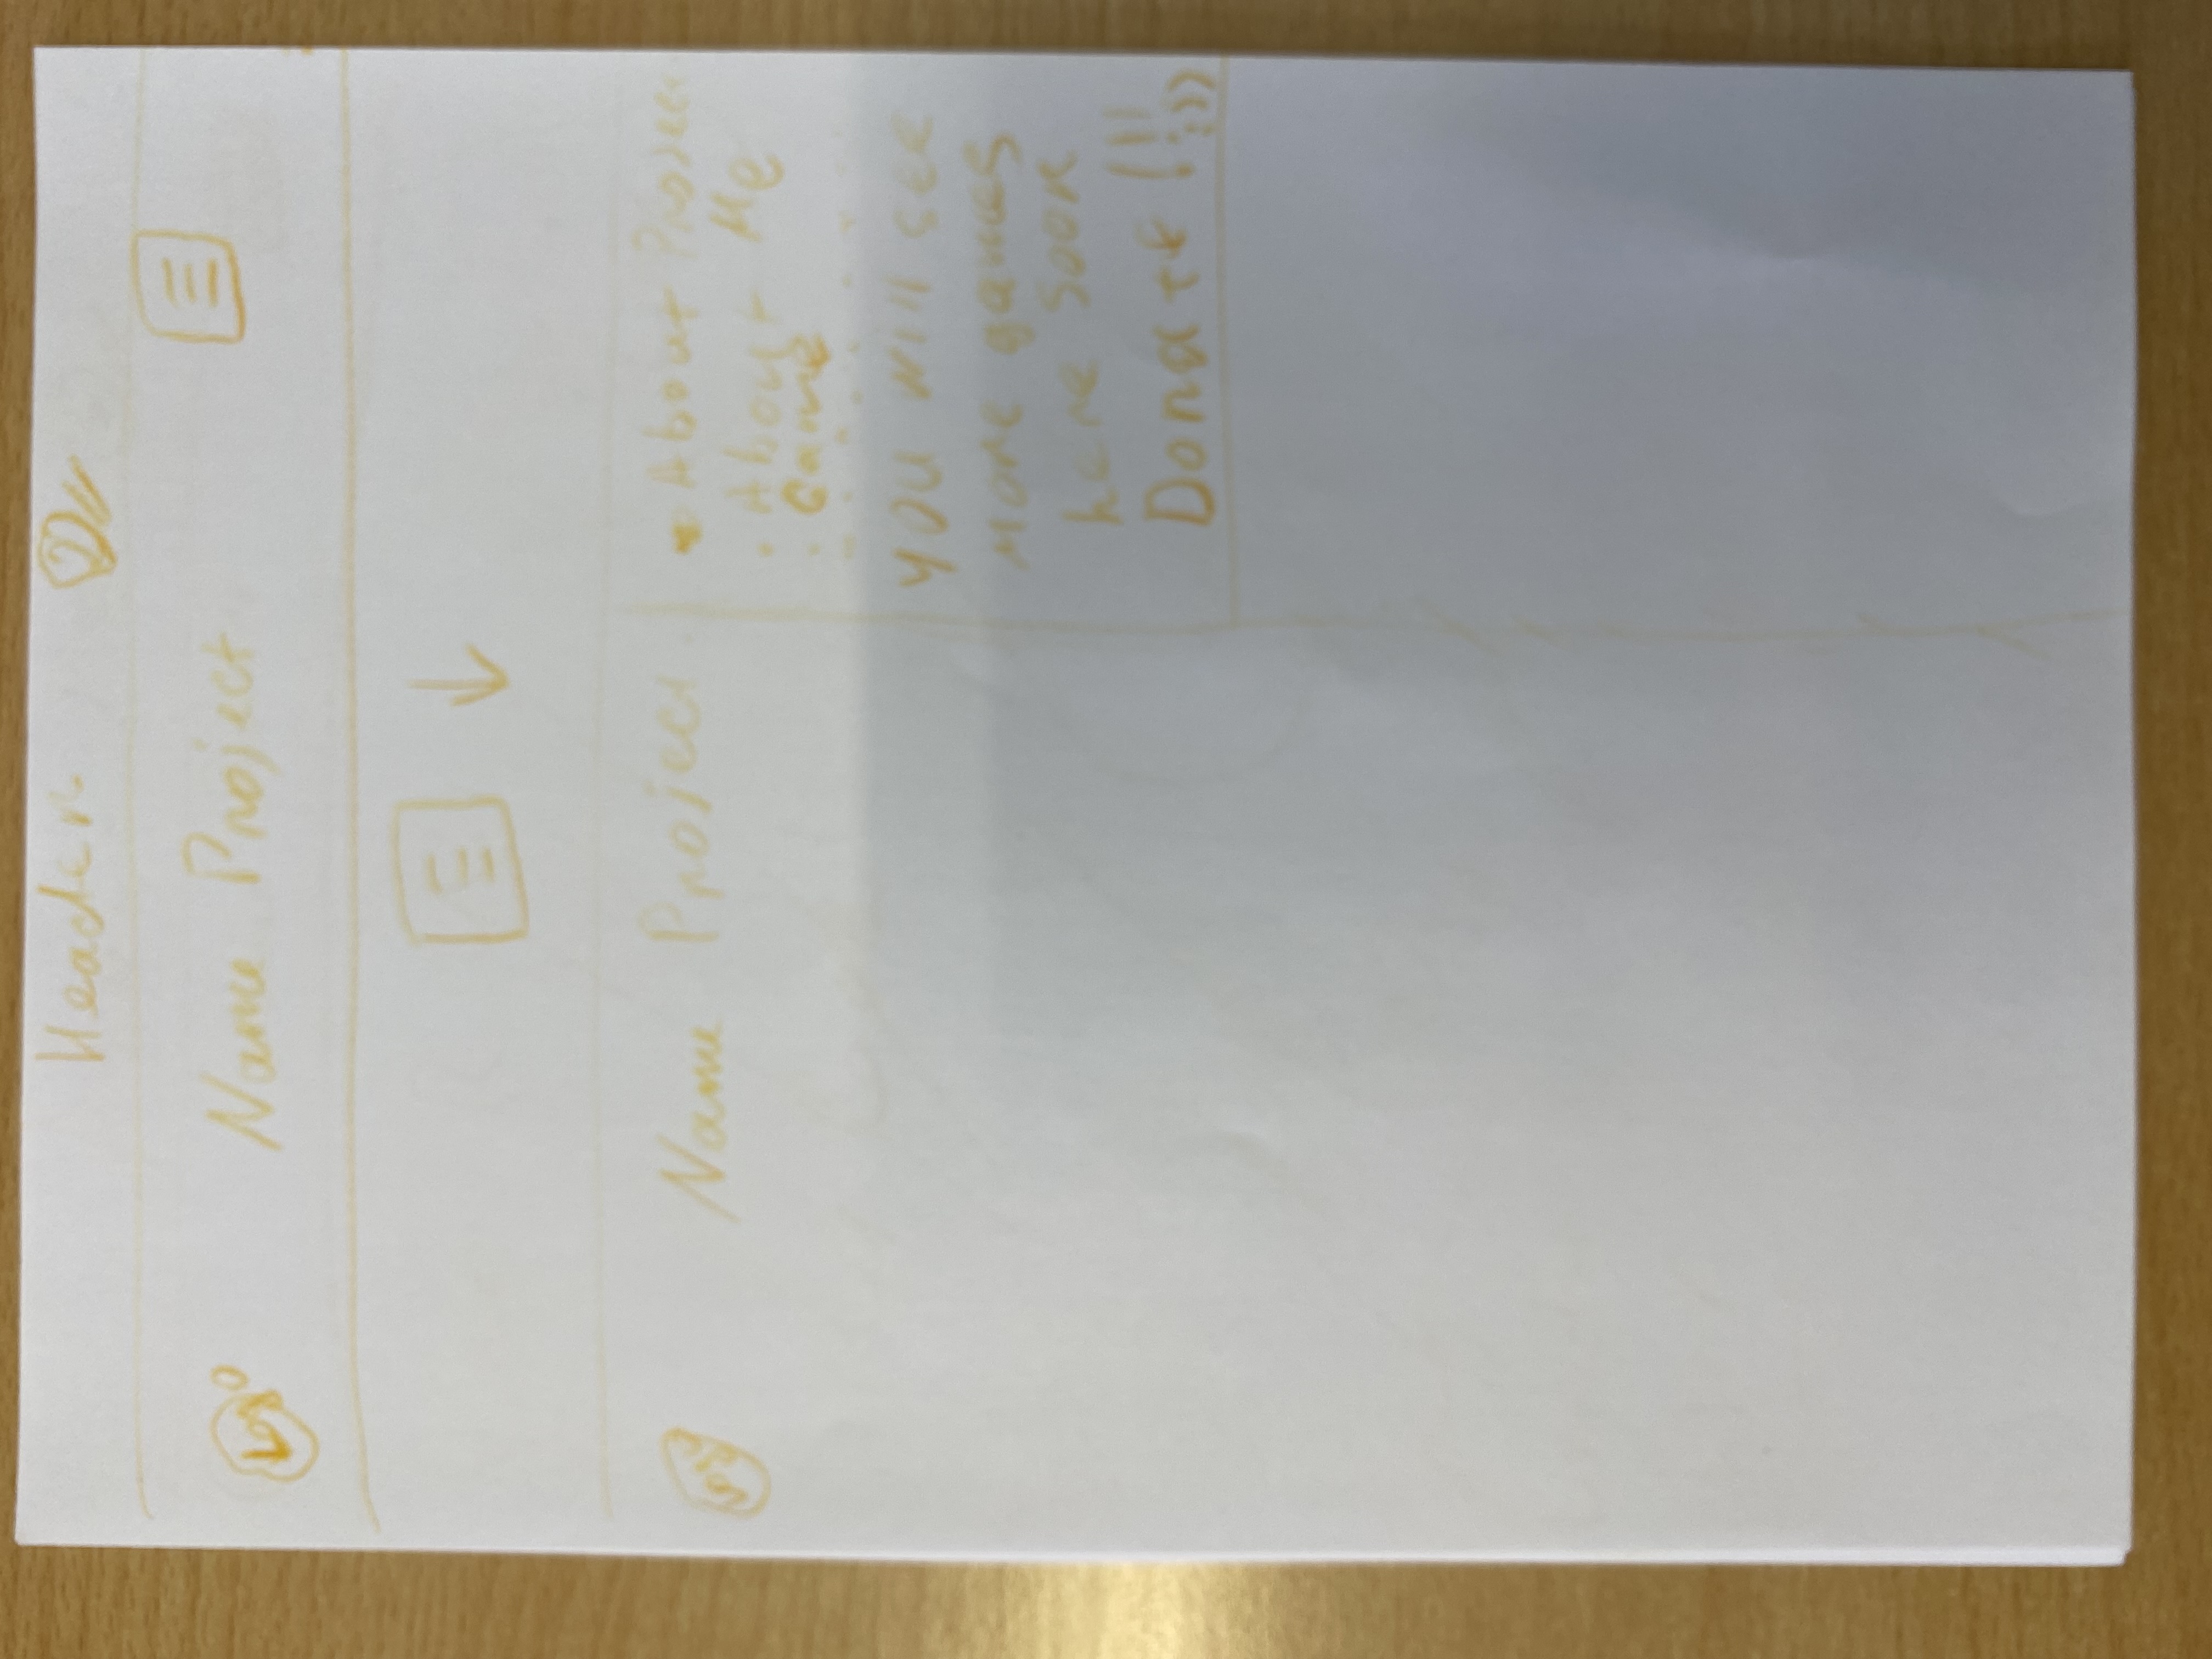 Header
Logo
Name Project
Logo
Name Project
• About Project
• About Me
• Game
You will see
more games
here soon
Donate !!! :))